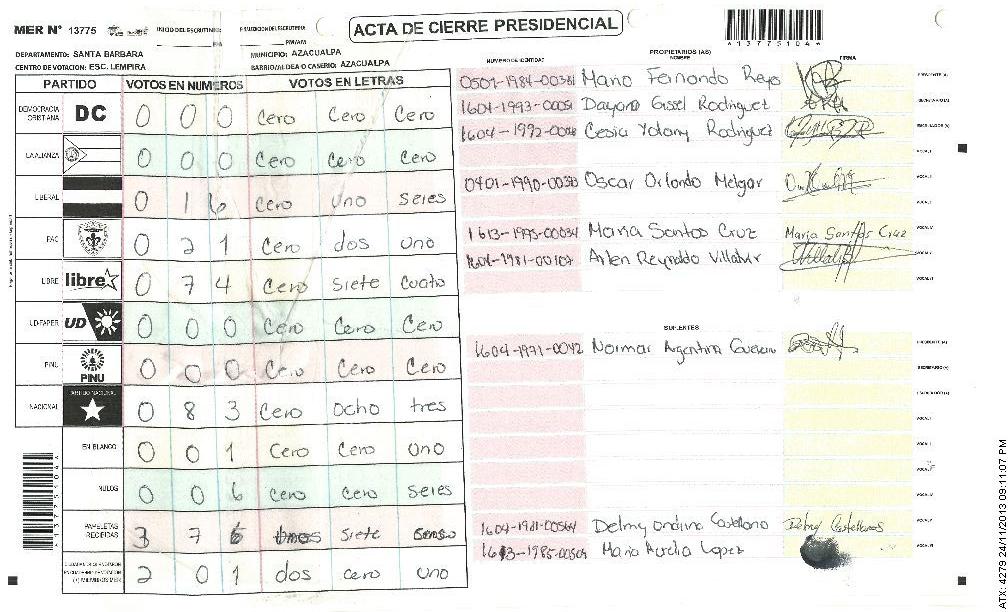 MER N° 13775
ACTA DE CIERRE PRESIDENCIAL
*13775104*
DEPARTAMENTO: SANTA BARBARA
MUNICIPIO: AZACUALPA
CENTRO DE VOTACION: ESC. LEMPIRA
BARRIO/ALDEA O CASERIO: AZACUALPA
PARTIDO VOTOS EN NUMEROS VOTOS EN LETRAS
DEMOCRACIA CRISTIANA DC 0 0 0 Cero Cero Cero
LA ALIANZA 0 0 0 Cero Cero Cero
LIBERAL 0 1 6 Cero uno seies
PAC 0 2 1 Cero dos uno
LIBRE libre 0 7 4 Cero Siete cuatro
UD-FAPER UD 0 0 0 Cero Cero Cero
PINU PINU 0 0 0 Cero Cero Cero
NACIONAL PARTIDO NACIONAL 0 8 3 Cero ocho tres
EN BLANCO 0 0 1 Cero Cero Uno
NULOS 0 0 6 Cero Cero Seies
PAPELETAS RECIBIDAS 3 7 6 siete
(+) MIEMBROS MER 2 0 1 dos cero uno
PROPIETARIOS (AS)
NUMERO DE IDENTIDAD NOMBRE FIRMA
Mario Fernando Reyes PRESIDENTE (A)
Dayana Gissel Rodriguez SECRETARIO (A)
Cesia Yolany Rodriguez ESCRUTADOR (A)
Oscar Orlando Melgar
1613-1995-00034 Maria Santos Cruz Maria Santos Cruz
1604-1981-00107 Arlen Reynaldo Villalvir
SUPLENTES
1604-1971-0042 Normar Argentina PRESIDENTE (A)
SECRETARIO (A)
Delmy ondina Castellano Delmy Castellanos
Maria Aurelia Lopez
*13775104*
ATX: 4279 24/11/2013 09:11:07 PM